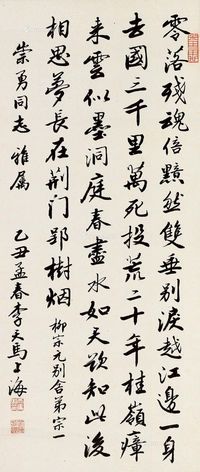 零落残魂倍黯然雙垂别淚越江邊一身
去國三千里萬死投荒二十年桂嶺瘴
来雲似墨洞庭春盡水如天欲知此後
相思夢長在荆门郢樹烟 柳宗元别舍弟宗一
崇勇同志 雅属
乙丑孟春李天馬上海